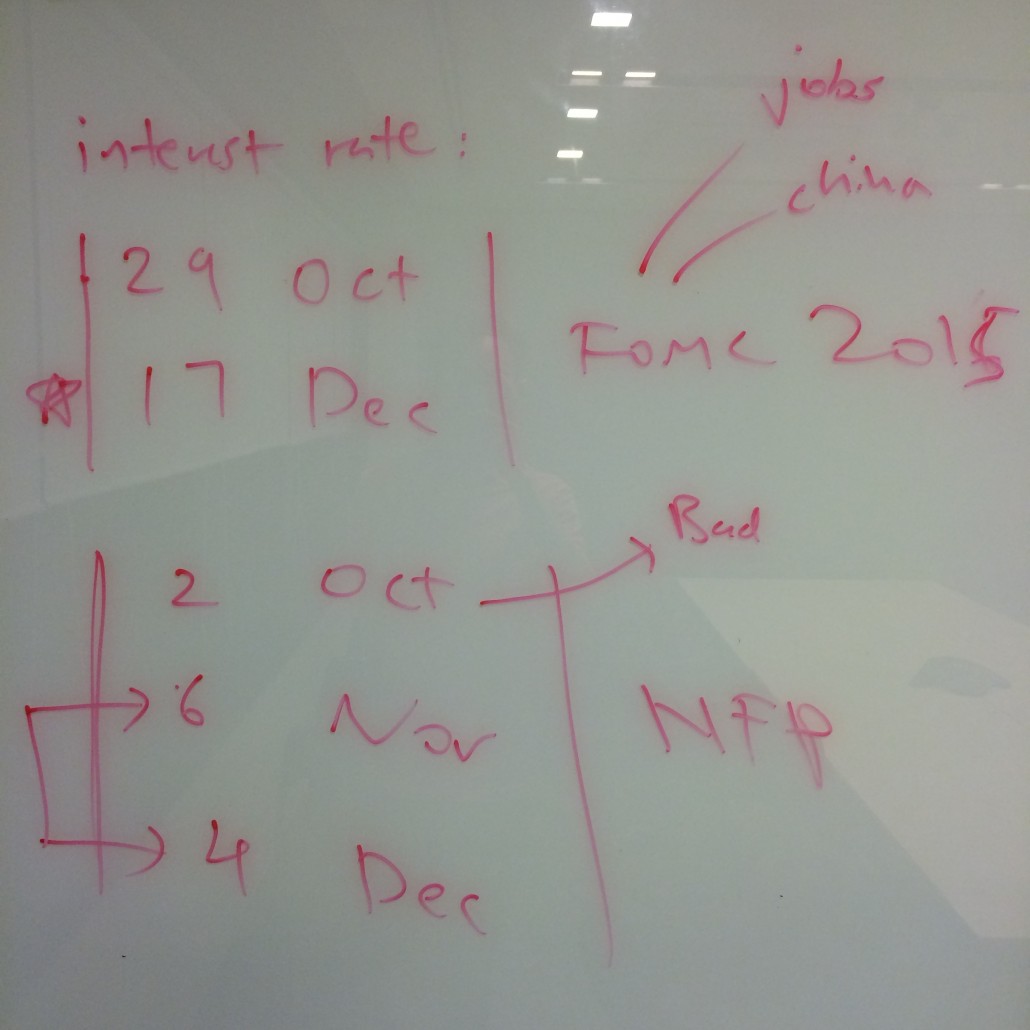 interest rate:
jobs
china
29 Oct
17 Dec
FOMC 2015
2 Oct
Bad
6 Nov
4 Dec
NFP